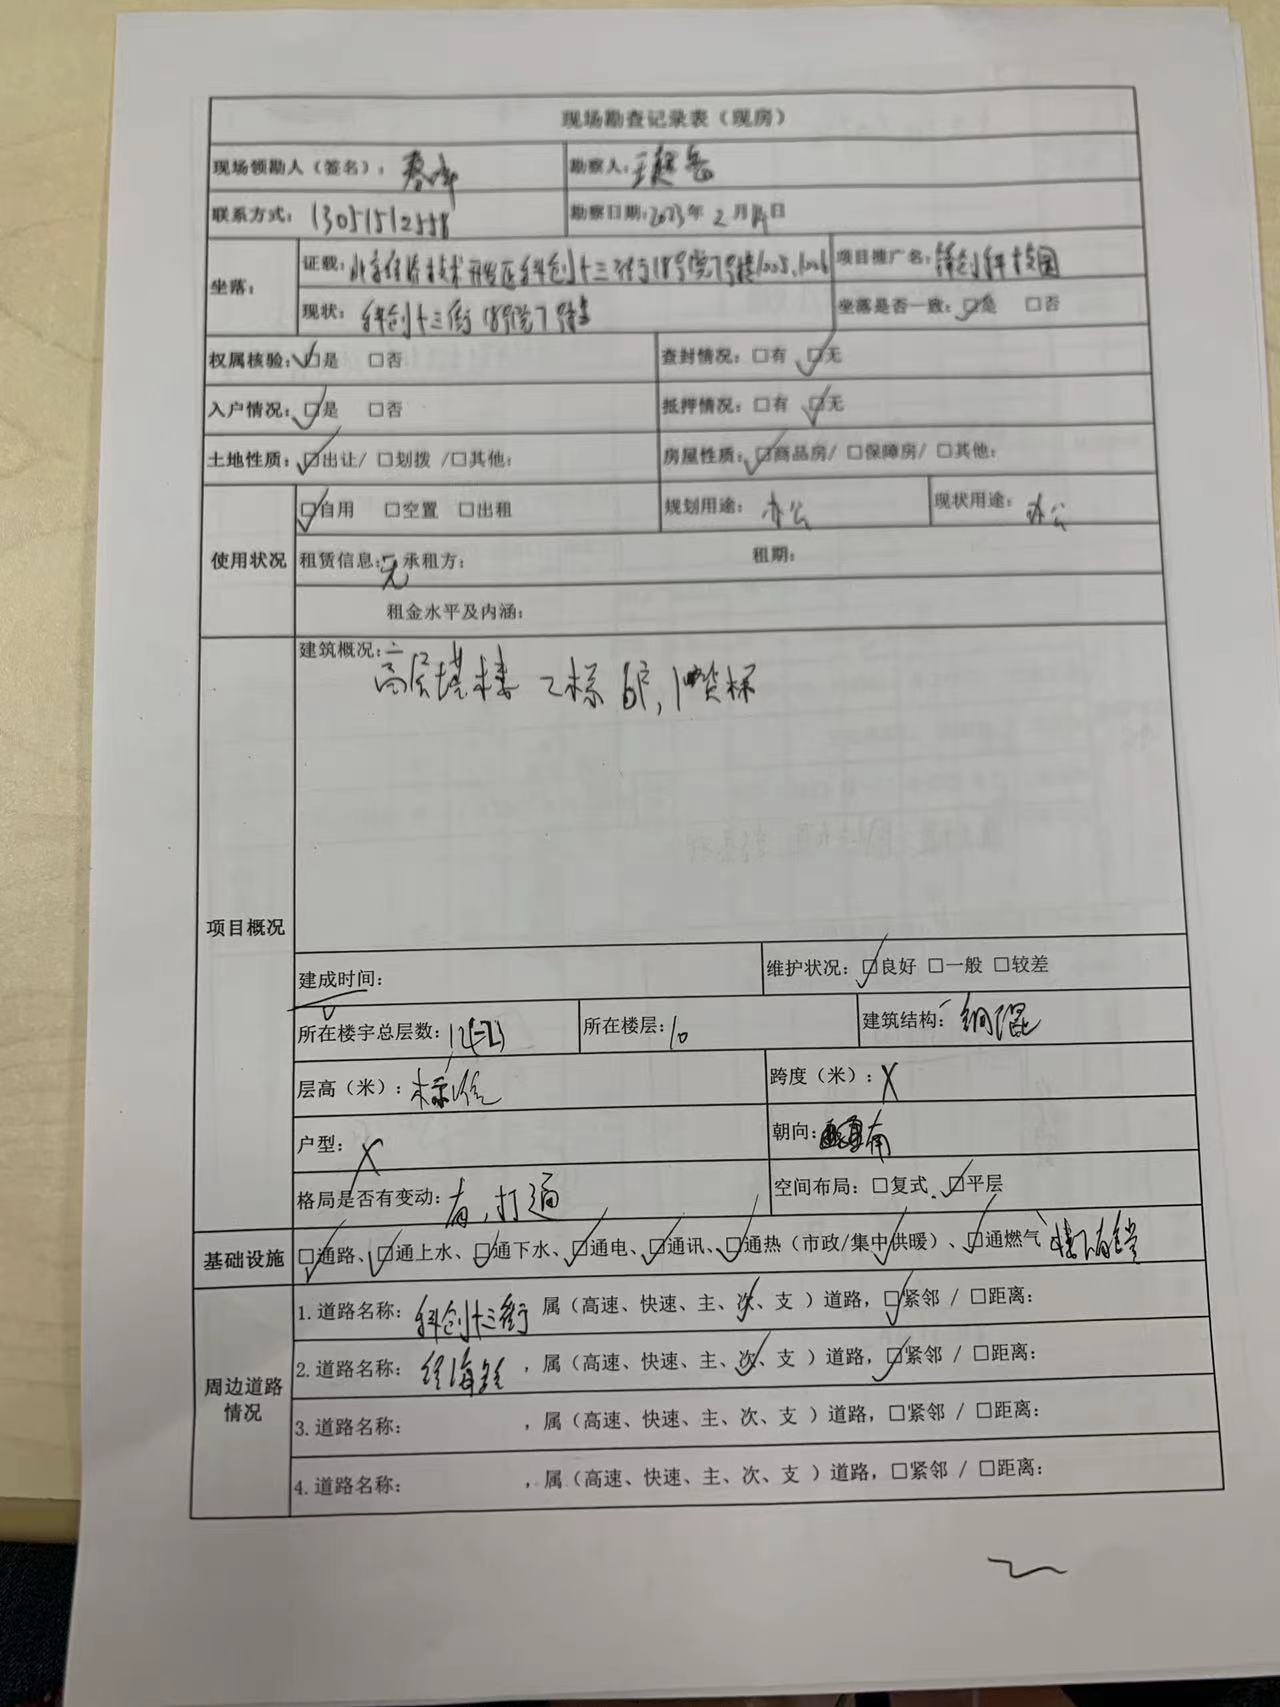 现场勘查记录表（现房）
现场领勘人（签名）： 勘察人：
联系方式：13051512558 勘察日期：2023年2月14日
坐落： 证载：北京经济技术开发区科创十三街18号院7号楼1005、1006 项目推广名：锋创科技园
现状：科创十三街18号院7号楼 坐落是否一致：☑是 □否
权属核验：☑是 □否 查封情况：□有 ☑无
入户情况：☑是 □否 抵押情况：□有 ☑无
土地性质：☑出让/ □划拨 /□其他： 房屋性质：☑商品房/ □保障房/ □其他：
使用状况 ☑自用 □空置 □出租 规划用途：办公 现状用途：办公
租赁信息：无 承租方： 租期：
租金水平及内涵：
项目概况 建筑概况：高层塔楼 2梯6户，1货梯
建成时间： 维护状况：☑良好 □一般 □较差
所在楼宇总层数：12(-2) 所在楼层：10 建筑结构：钢混
层高（米）：标准 跨度（米）：X
户型：X 朝向：南
格局是否有变动：有，打通 空间布局：□复式 ☑平层
基础设施 ☑通路、☑通上水、☑通下水、☑通电、☑通讯、☑通热（市政/集中供暖）、☑通燃气
周边道路情况 1.道路名称：科创十三街 属（高速、快速、主、次、支 ）道路，☑紧邻 / □距离：
2.道路名称：经海路 ，属（高速、快速、主、次、支 ）道路，☑紧邻 / □距离：
3.道路名称： ，属（高速、快速、主、次、支 ）道路，□紧邻 / □距离：
4.道路名称： ，属（高速、快速、主、次、支 ）道路，□紧邻 / □距离：